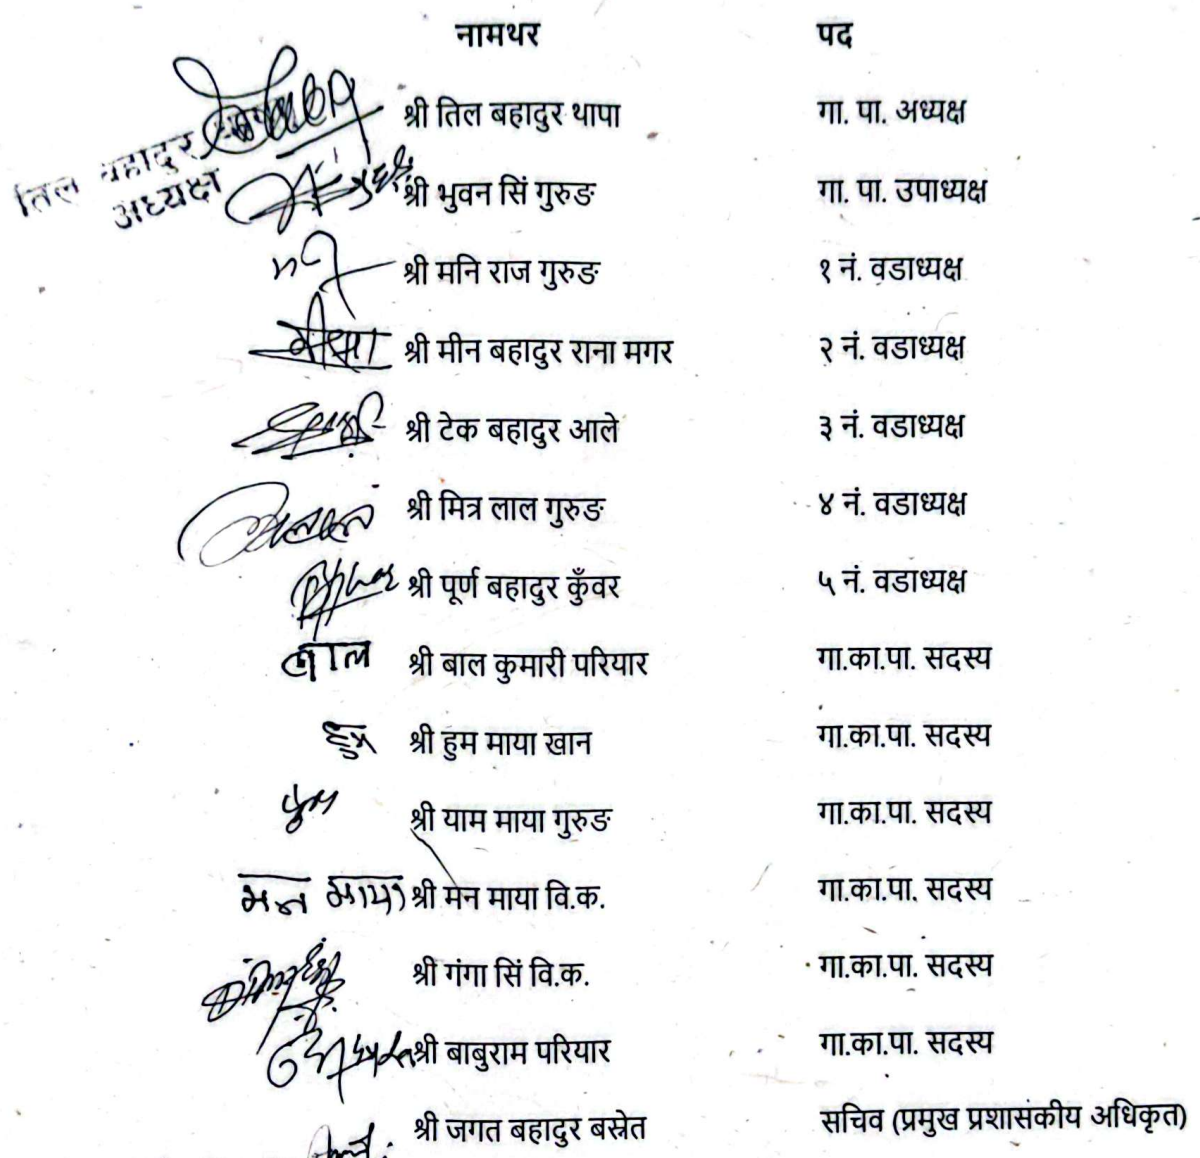 नामथर पद
श्री तिल बहादुर थापा गा. पा. अध्यक्ष
तिल बहादुर
अध्यक्ष
श्री भुवन सिं गुरुङ गा. पा. उपाध्यक्ष
श्री मनि राज गुरुङ १ नं. वडाध्यक्ष
श्री मीन बहादुर राना मगर २ नं. वडाध्यक्ष
श्री टेक बहादुर आले ३ नं. वडाध्यक्ष
श्री मित्र लाल गुरुङ ४ नं. वडाध्यक्ष
श्री पूर्ण बहादुर कुँवर ५ नं. वडाध्यक्ष
बाल श्री बाल कुमारी परियार गा.का.पा. सदस्य
हुम श्री हुम माया खान गा.का.पा. सदस्य
श्री याम माया गुरुङ गा.का.पा. सदस्य
मन माया श्री मन माया वि.क. गा.का.पा. सदस्य
श्री गंगा सिं वि.क. गा.का.पा. सदस्य
श्री बाबुराम परियार गा.का.पा. सदस्य
श्री जगत बहादुर बस्नेत सचिव (प्रमुख प्रशासकीय अधिकृत)